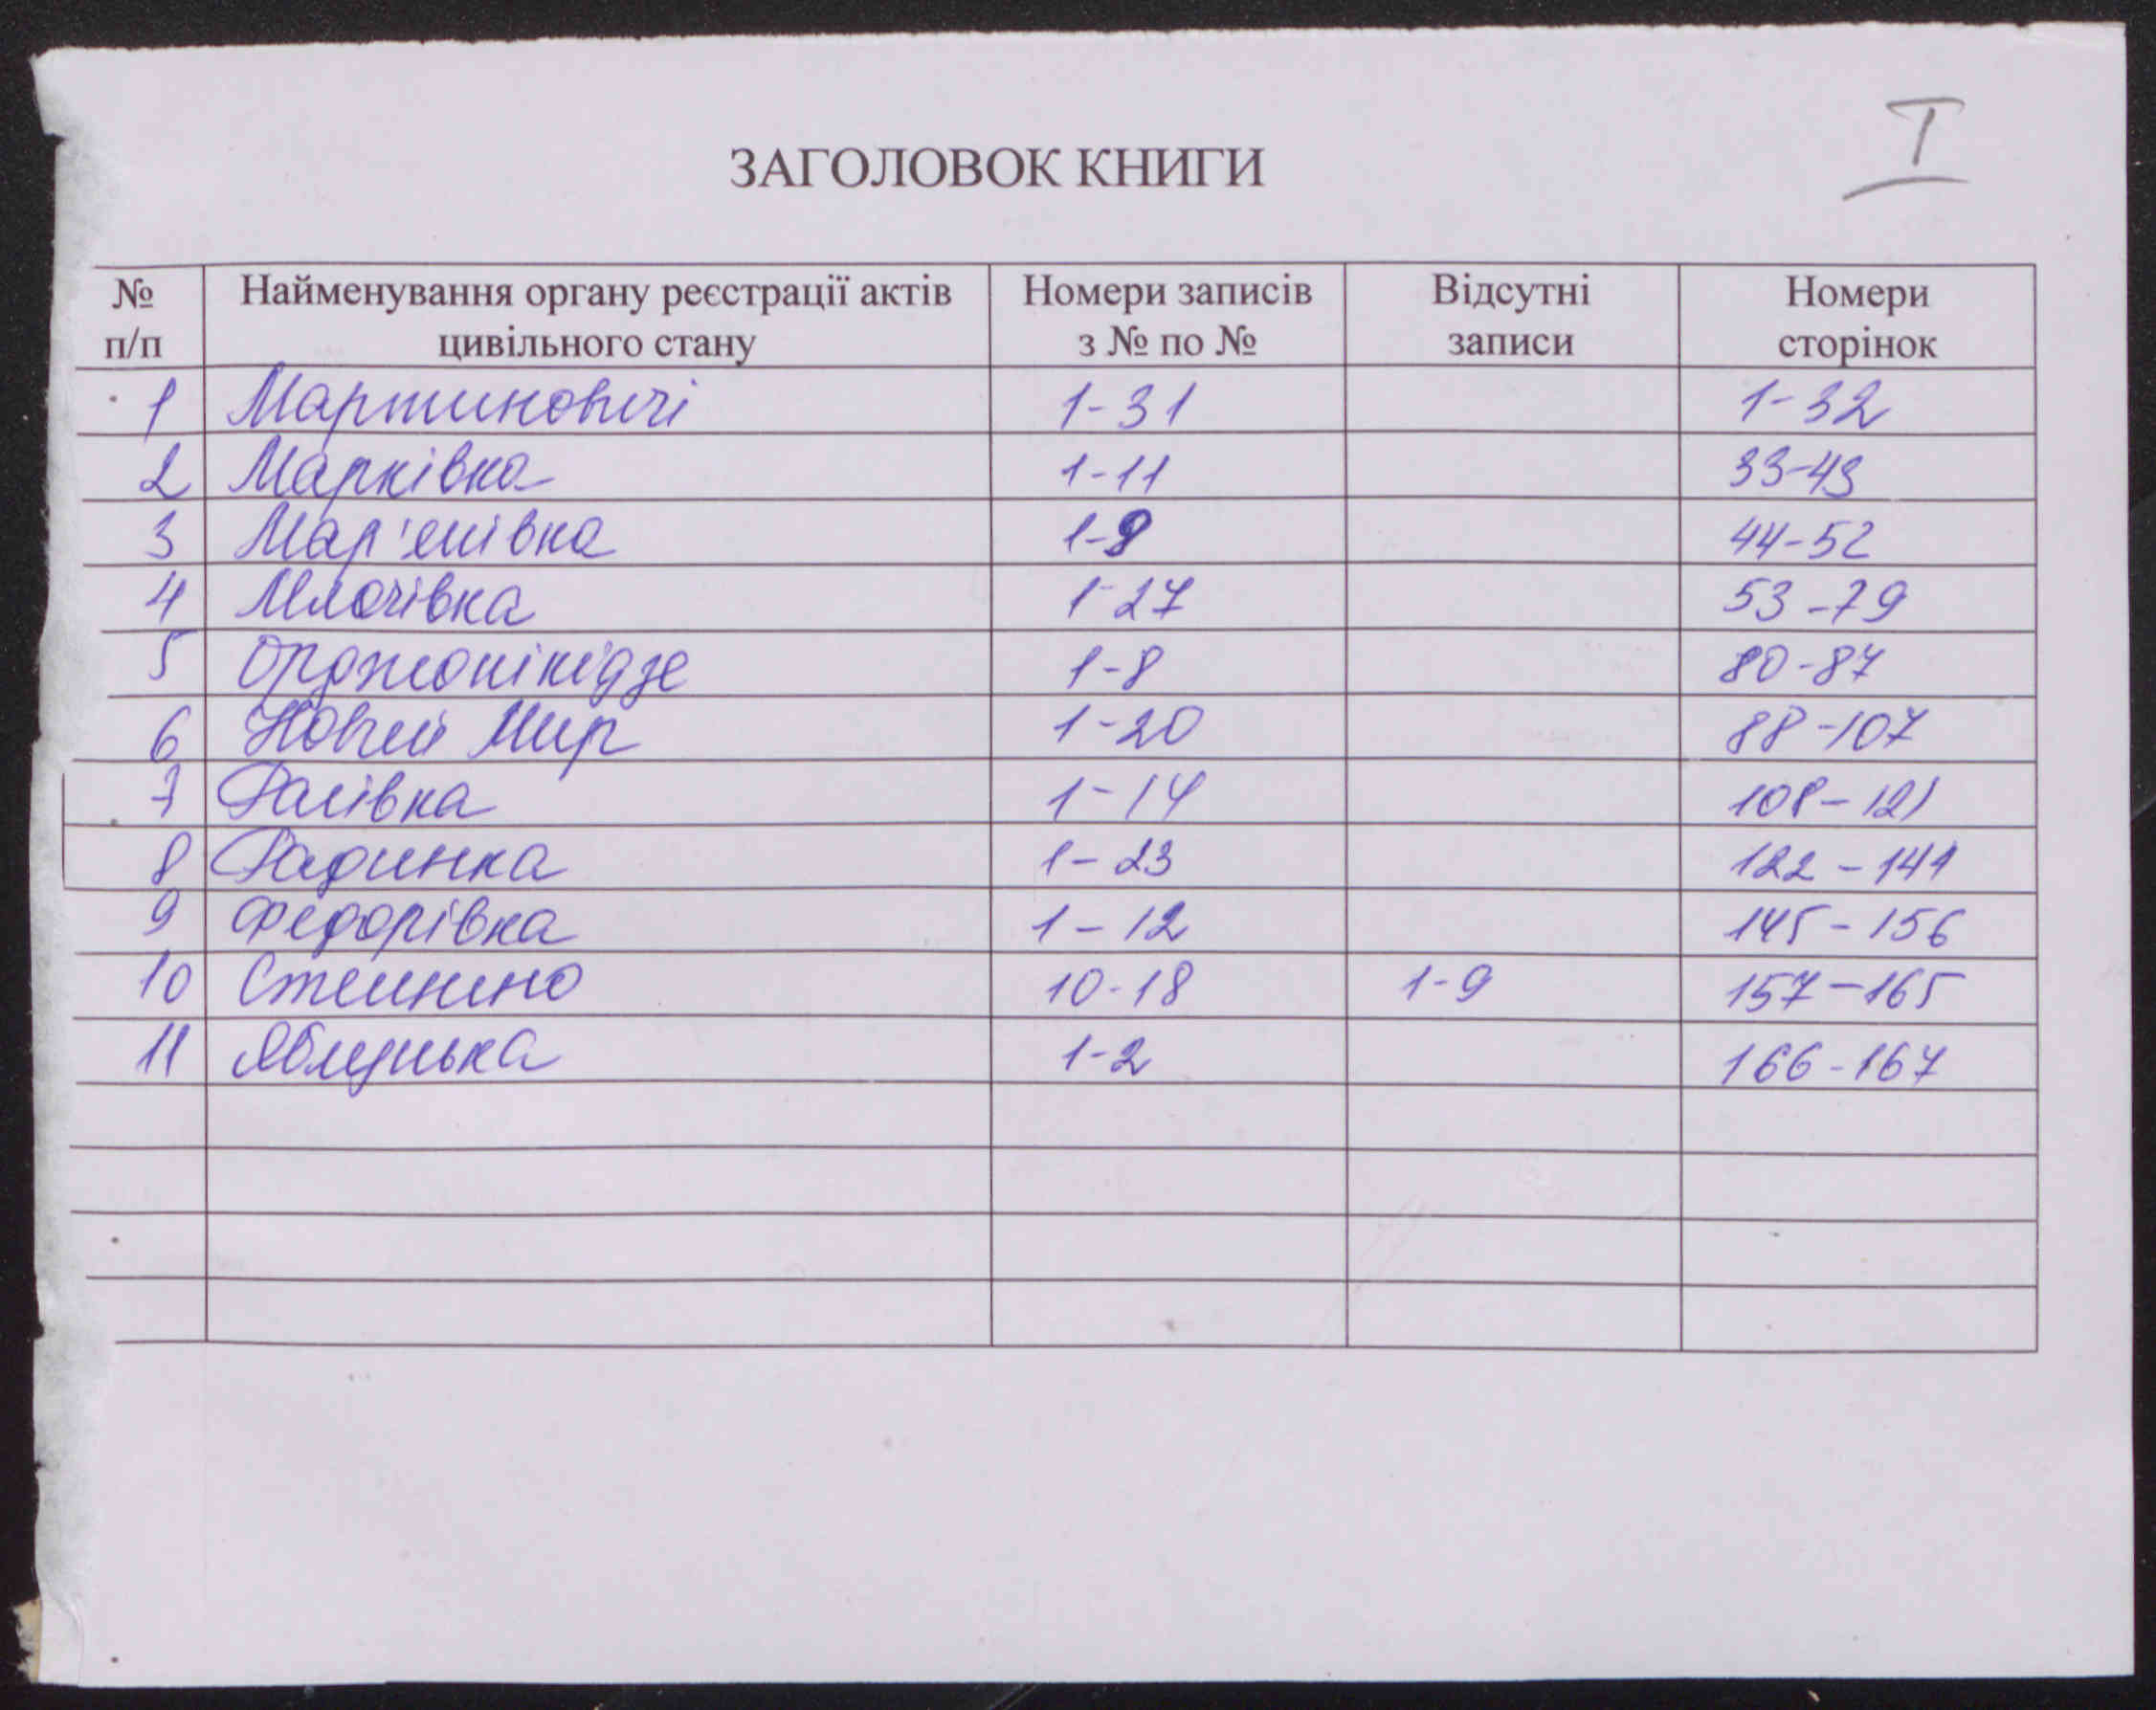 I
ЗАГОЛОВОК КНИГИ
№ п/п Найменування органу реєстрації актів цивільного стану Номери записів з № по № Відсутні записи Номери сторінок
1 Мартиновичі 1-31 1-32
2 Марківка 1-11 33-43
3 Мар'янівка 1-9 44-52
4 Млачівка 1-27 53-79
5 Орджонікідзе 1-8 80-87
6 Новый Мир 1-20 88-107
7 Рагівка 1-14 108-121
8 Радинка 1-23 122-144
9 Федорівка 1-12 145-156
10 10-18 1-9 157-165
11 Яблунька 1-2 166-167